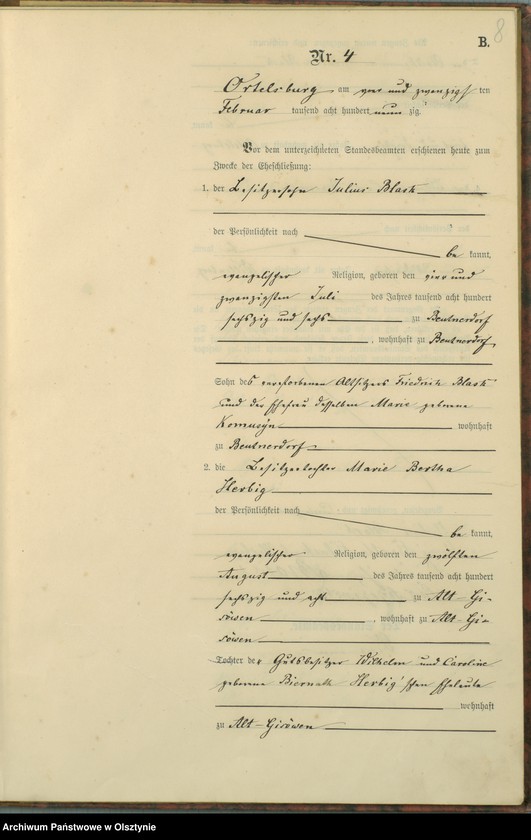 8
B.
Nr. 4
Ortelsburg am vier und zwanzigsten
Februar tausend acht hundert neunzig
Vor dem unterzeichneten Standesbeamten erschienen heute zum
Zwecke der Eheschließung:
1. der Besitzersohn Julius Blask
der Persönlichkeit nach
bekannt,
evangelischer Religion, geboren den vier und
zwanzigsten Juli des Jahres tausend acht hundert
sechszig und sechs zu Beutnerdorf
, wohnhaft zu Beutnerdorf
Sohn des verstorbenen Altsitzers Friedrich Blask
und der Ehefrau desselben Marie geborene
wohnhaft
zu Beutnerdorf.
2. die Besitzertochter Marie Bertha
Herbig
der Persönlichkeit nach
bekannt,
evangelischer Religion, geboren den zwölften
August des Jahres tausend acht hundert
sechszig und acht zu Alt-Gi-
söwen , wohnhaft zu Alt-Gi-
söwen
Tochter der Gutsbesitzer Wilhelm und Caroline
geborene Biernath Herbig'schen Eheleute
wohnhaft
zu Alt-Gisöwen
Archiwum Państwowe w Olsztynie